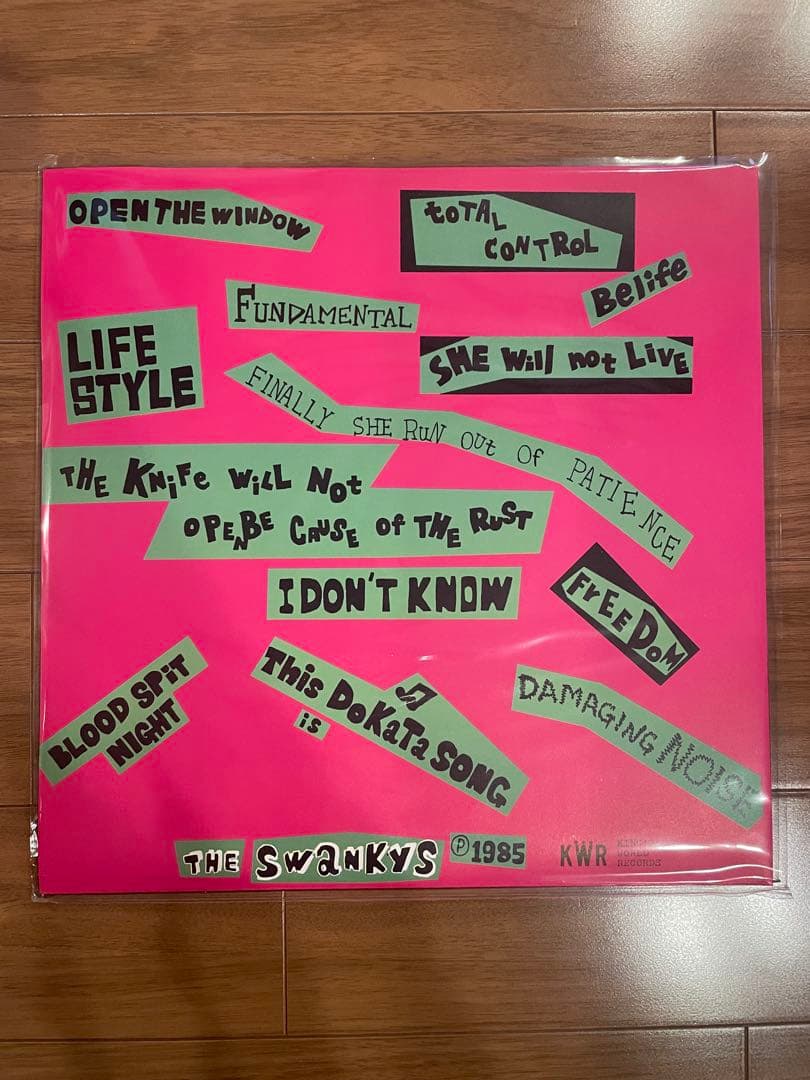 OPEN THE WINDOW
toTAL
CONTROL
Belife
FUNDAMENTAL
LIFE
STYLE
SHE Will not LivE
FINALLY SHE RUN Out OF PATIENCE
THE KNiFe WiLL NOt
OPENBE CAUSE of THE RUST
I DON'T KNOW
FrEEDOM
BLOOD SPiT
NIGHT
This DoKaTa SONG
is
DAMAGING NOISE
THE SWaNKYS
℗1985
KWR
KINGS
WORLD
RECORDS